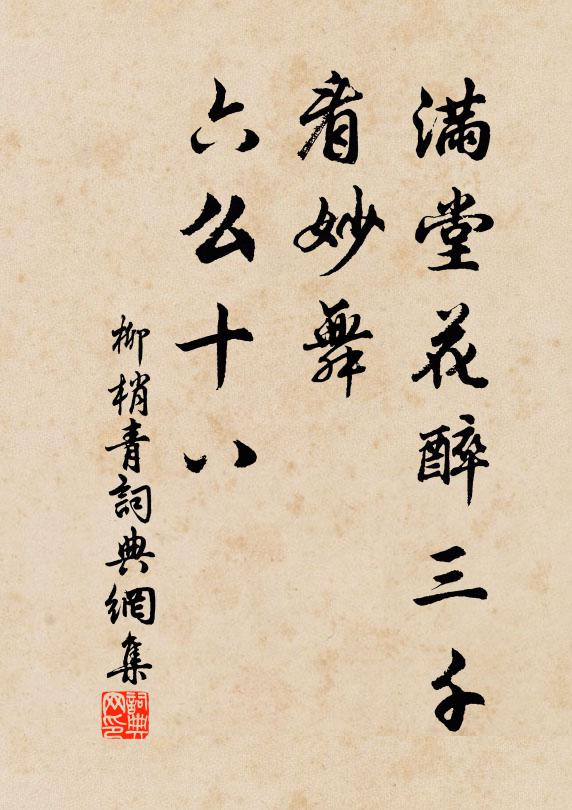 滿堂花醉三千
看妙舞
六么十八
柳梢青詞典網集
詞典网印